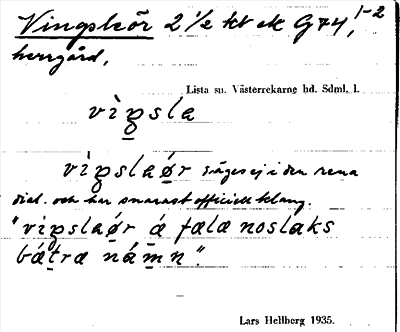 Vingsleör 2 1/2 kt ek G 74, 1-2
herrgård.
Lista su. Västerrekarne hd. Sdml. l.
vìŋsla
vìŋslaǿr säges ej i den rena
dial. och har snarast officiell klang.
"vìŋslaǿr ǽ fælæ noslaks
bǽtræ námn".
Lars Hellberg 1935.